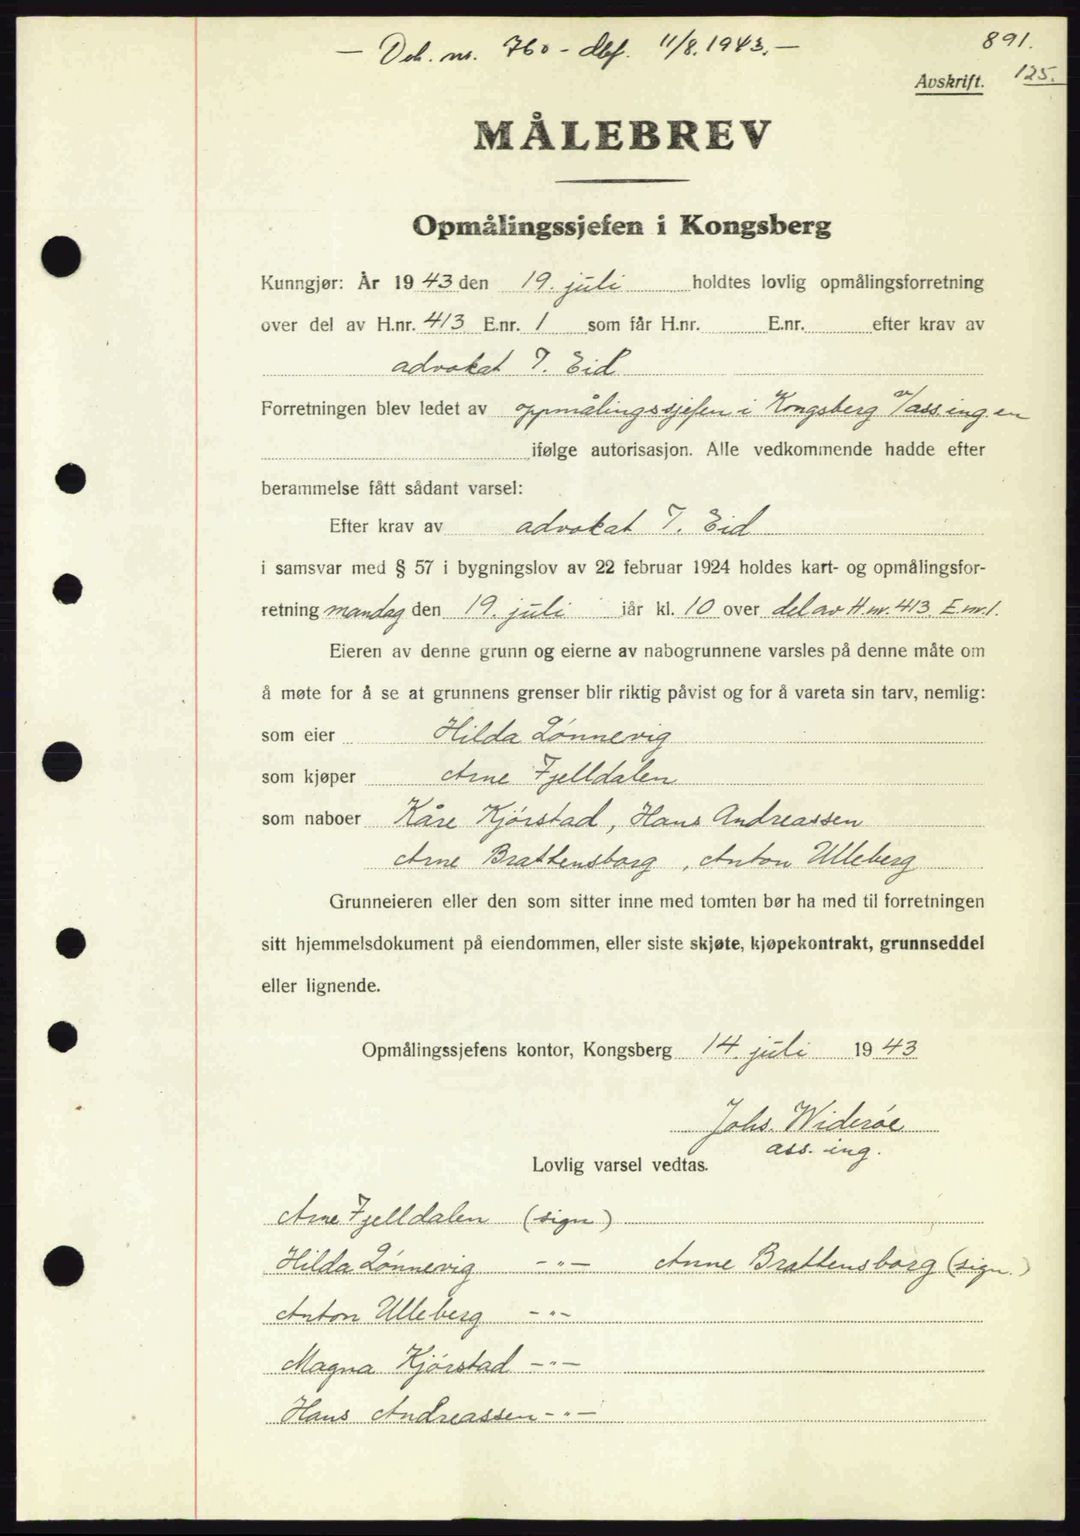 — Deb. nr. 760 - dbf. 11/8.1943. —
891.
Avskrift.
125.
MÅLEBREV
Opmålingssjefen i Kongsberg
Kunngjør: År 1943 den 19. juli holdtes lovlig opmålingsforretning
over del av H.nr. 413 E.nr. 1 som får H.nr. E.nr. efter krav av
advokat T. Eid
Forretningen blev ledet av oppmålingssjefen i Kongsberg v/ass.ing.en
ifølge autorisasjon. Alle vedkommende hadde efter
berammelse fått sådant varsel:
Efter krav av advokat T. Eid
i samsvar med § 57 i bygningslov av 22 februar 1924 holdes kart- og opmålingsfor-
retning mandag den 19. juli iår kl. 10 over del av H.nr. 413, E.nr.1.
Eieren av denne grunn og eierne av nabogrunnene varsles på denne måte om
å møte for å se at grunnens grenser blir riktig påvist og for å vareta sin tarv, nemlig:
som eier Hilda Lønnevig
som kjøper Arne Fjelldalen
som naboer Kåre Kjørstad, Hans Andreassen
Arne Brattensborg, Anton Ulleberg
Grunneieren eller den som sitter inne med tomten bør ha med til forretningen
sitt hjemmelsdokument på eiendommen, eller siste skjøte, kjøpekontrakt, grunnseddel
eller lignende.
Opmålingssjefens kontor, Kongsberg 14. juli 1943
Johs. Widerøe
ass. ing.
Lovlig varsel vedtas.
Arne Fjelldalen (sign)
Hilda Lønnevig —"— Anne Brattensborg (sign.)
Anton Ulleberg —"—
Magna Kjørstad —"—
Hans Andreassen —"—